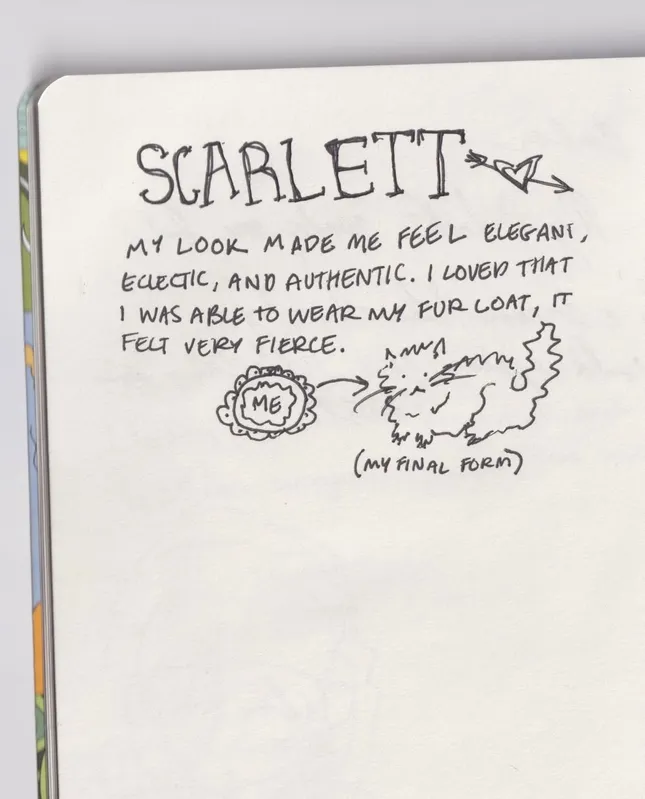 SCARLETT
MY LOOK MADE ME FEEL ELEGANT,
ECLECTIC, AND AUTHENTIC. I LOVED THAT
I WAS ABLE TO WEAR MY FUR COAT, IT
FELT VERY FIERCE.
ME
(MY FINAL FORM)